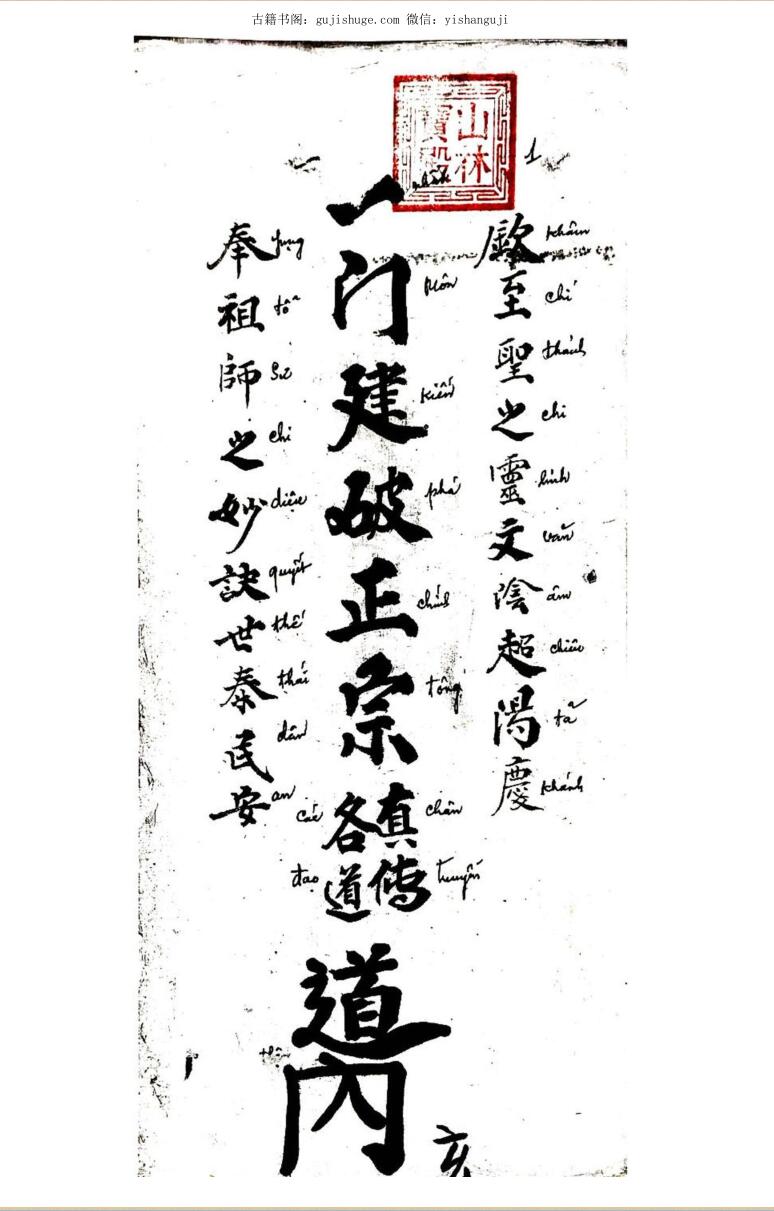 古籍书阁：gujishuge.com 微信：yishanguji
山林
寶殿
1
歆至聖之靈文陰超陽慶
khâm chí thánh chi linh văn âm chiêu tã khánh
一门建破正宗
môn kiến phá chính tông
真傳
chân truyền
各道
các đạo
道內
奉祖師之妙訣世泰民安
phụng tổ sư chi diệu quyết thế thái dân an